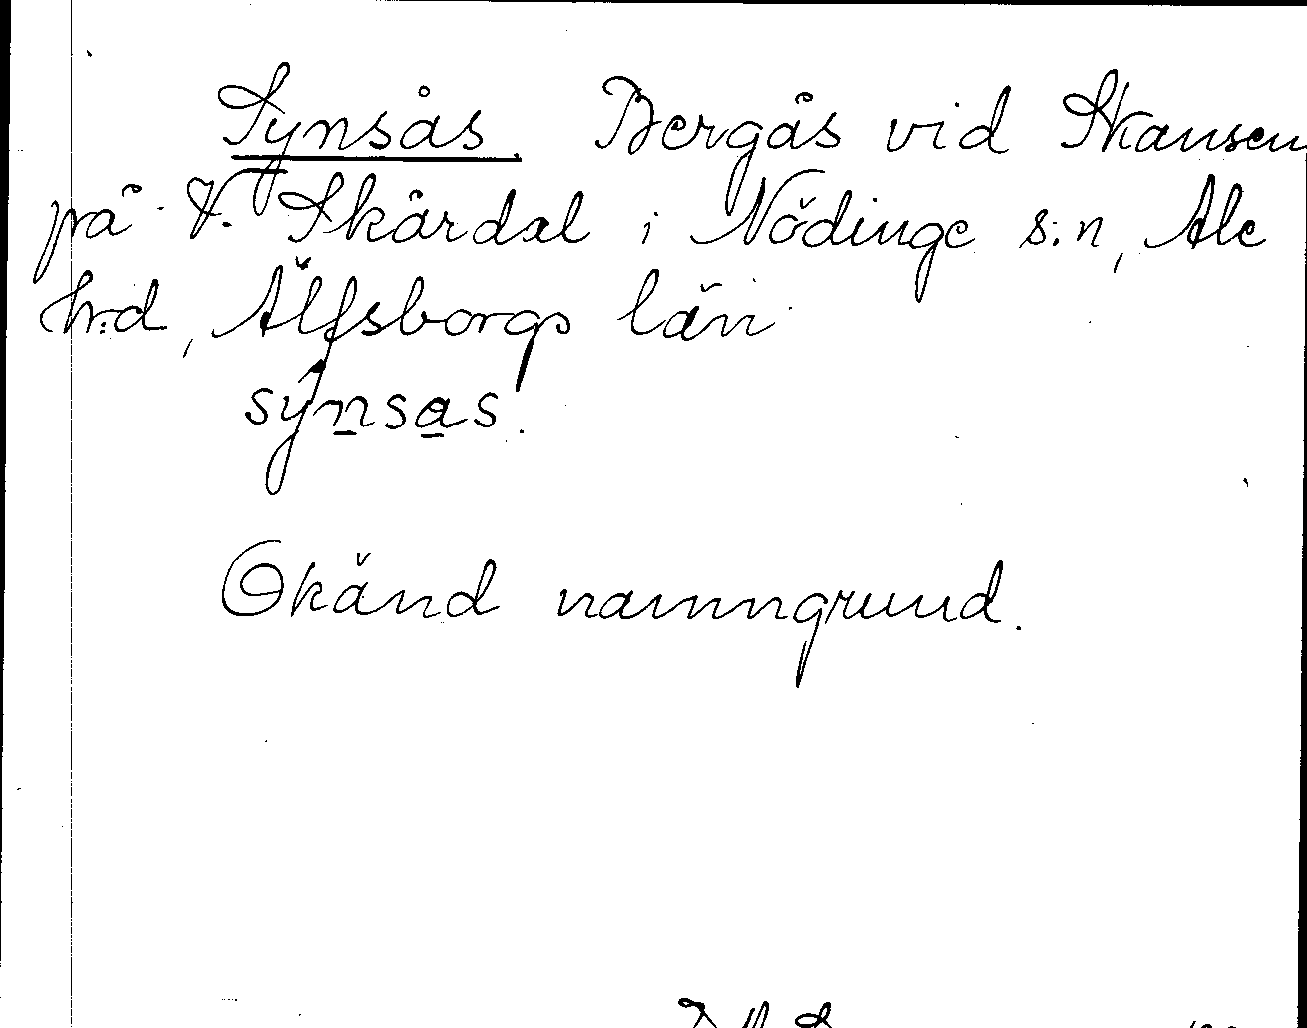 Synsås. Bergås vid Skansen
på V. Skårdal i Nödinge s:n, Ale
hrd, Älfsborgs län
synsas.
Okänd namngrund.